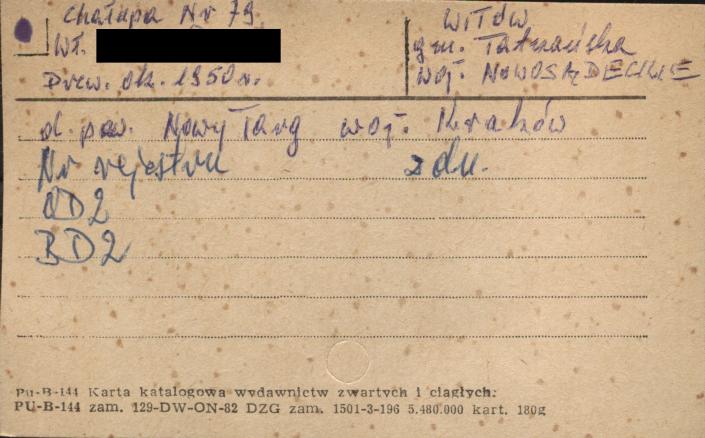 Chałupa Nr 79
Wł.
Drew. ok. 1950 r.
WITÓW
gm. Tatrzańska
woj. NOWOSĄDECKIE
d. pow. Nowy Targ woj. Kraków
Nr rejestru z dn.
BD2
PU-B-144 Karta katalogowa wydawnictw zwartych i ciągłych.
PU-B-144 zam. 129-DW-ON-82 DZG zam. 1501-3-196 5.480.000 kart. 180g